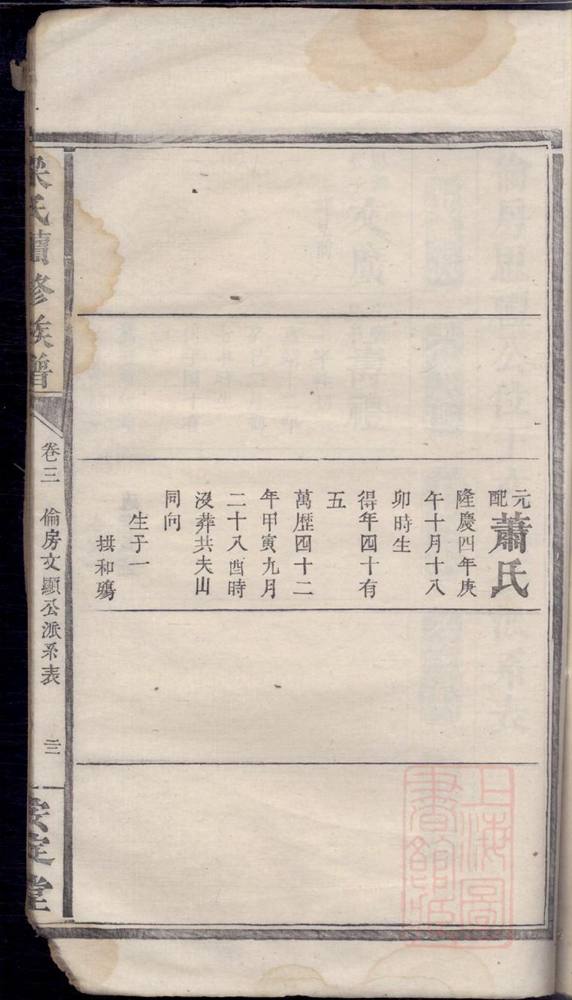 元配蕭氏
隆慶四年庚
午十月十八
卯時生
得年四十有
五
萬歷四十二
年甲寅九月
二十八酉時
沒葬共夫山
同向
生子一
拱和殤
梁氏續修族譜
卷三
倫房文顯公派系表
安定堂
上海圖
書館藏